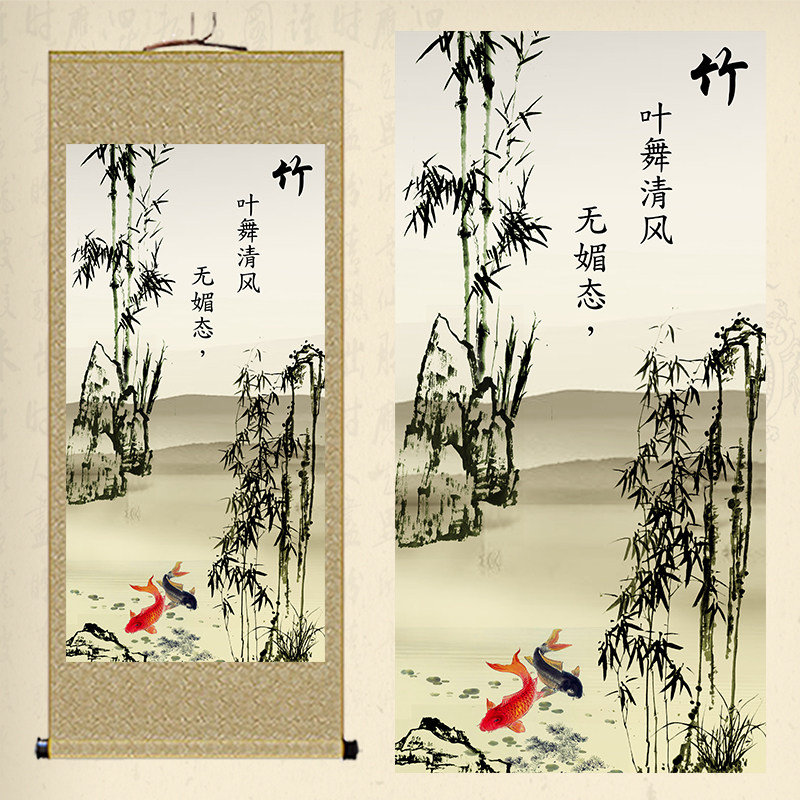 竹
叶舞清风
无媚态，
竹
叶舞清风
无媚态，